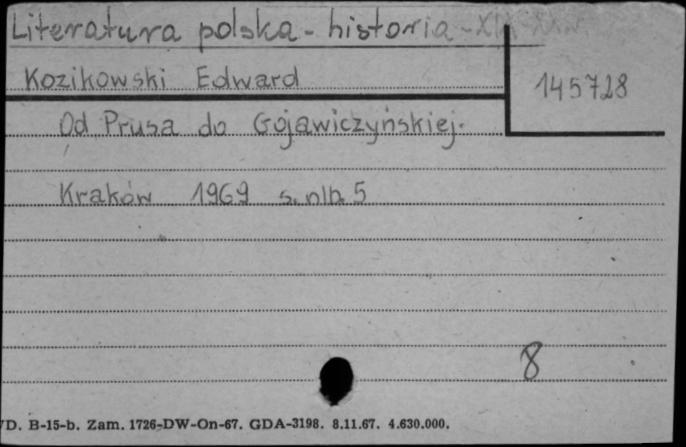 Literatura polska - historia - XIX
Kozikowski Edward
145728
Od Prusa do Gojawiczyńskiej.
Kraków 1969 s. nlb. 5
8
D. B-15-b. Zam. 1726-DW-On-67. GDA-3198. 8.11.67. 4.630.000.